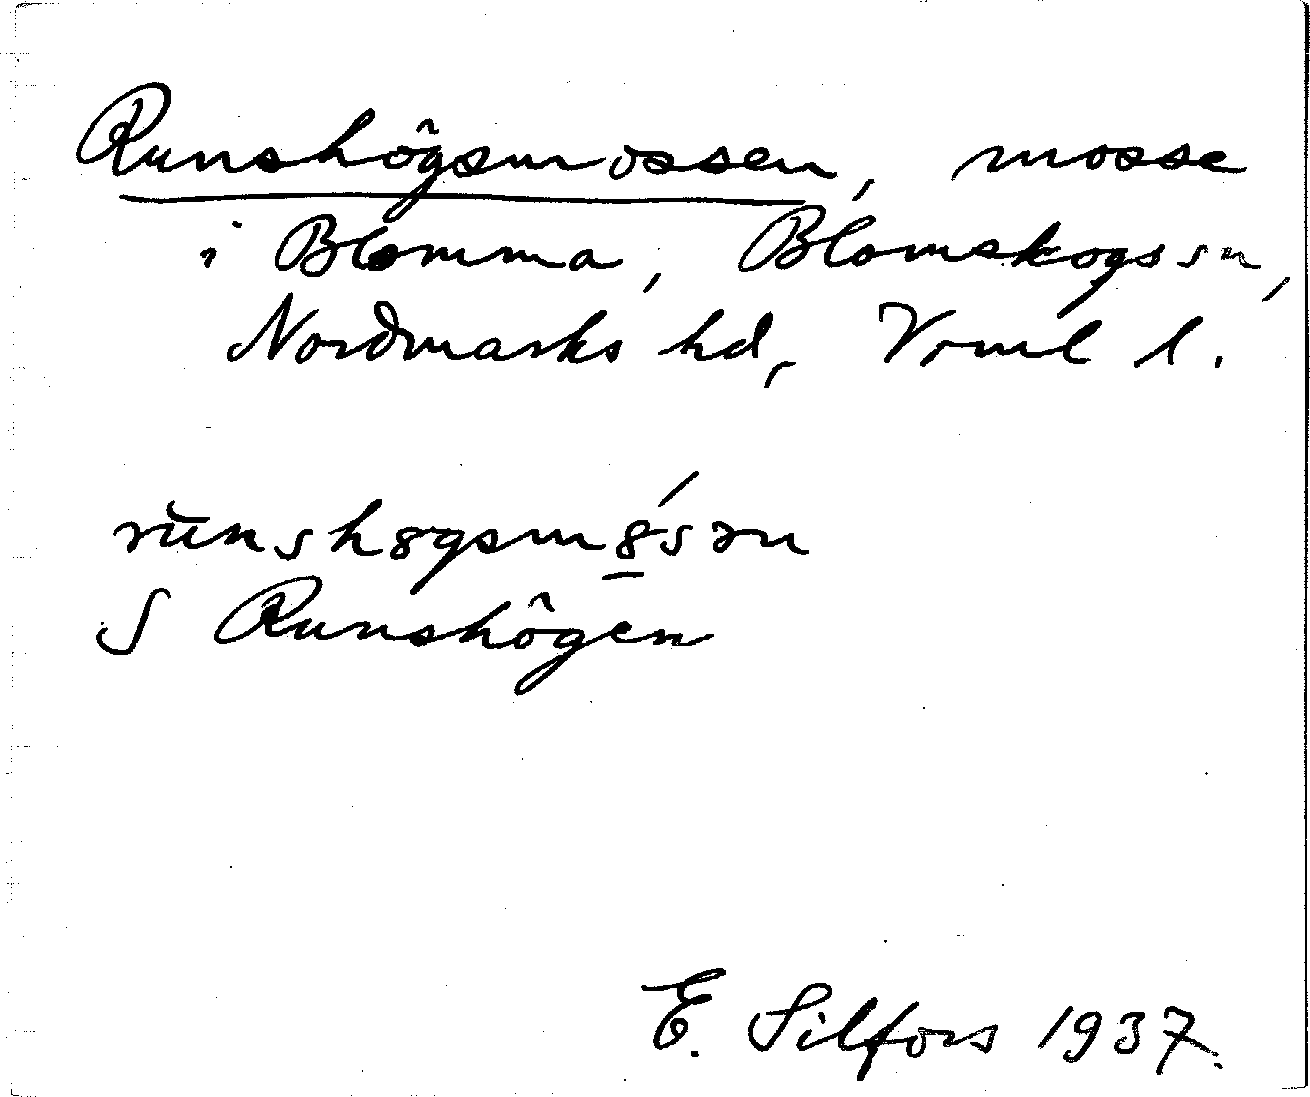 Runshögsmossen, mosse
i Blomma, Blomskogs sn,
Nordmarks hd, Vrml l.
S Runshögen
E. Silfors 1937.